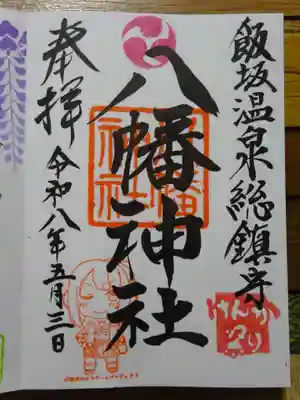 飯坂温泉総鎮守
八幡神社
八幡神社
けんか祭り
奉拝
令和八年五月三日